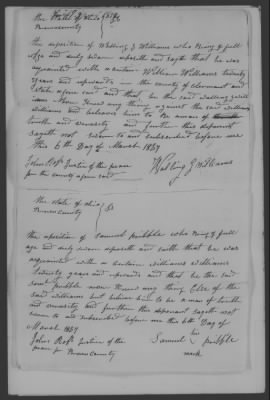 the State of Ohio } SS
Brown County
the deposition of Watling G Williams who Being of full
age and duly sworn deposeth and sayth that he was
aquainted with a certain William Williams twenty
years and upwards in the county of Clermont and
State afore said and that he the said
never Knew any thing against the said William
Williams and believes him to Be a man of
truth and veracity and further this deponent
sayeth not sworn to and subscribed before me
this 6th Day of March 1837
John Justice of the peace Watling G Williams
for the county afore said
The state of ohio } SS
Brown County
the deposition of Samuel pribble who Being of full
age and duly sworn deposeth and saith that he was
aquainted with a certain William Williams
twenty years and upwards and that he the said
Saml pribble never Knew any thing Else of the
said williams but believes him to be a man of truth
and veracity and further this deponent sayeth not
sworn to and subscribed before me this 6th Day of
March 1837
John Justice of the Samuel his pribble
peace for Brown County mark